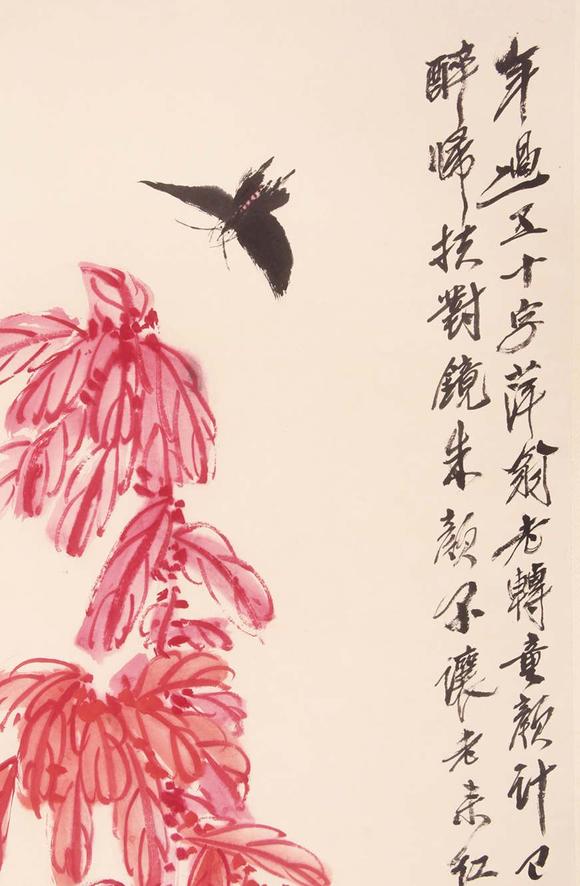 年過五十字萍翁老轉童顏計已
醉歸扶對鏡朱顏不讓老来紅